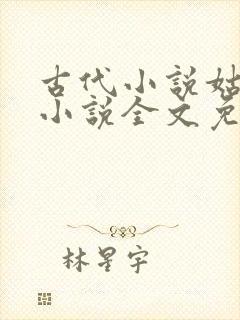 古代小说姑
小说全文免
林星宇